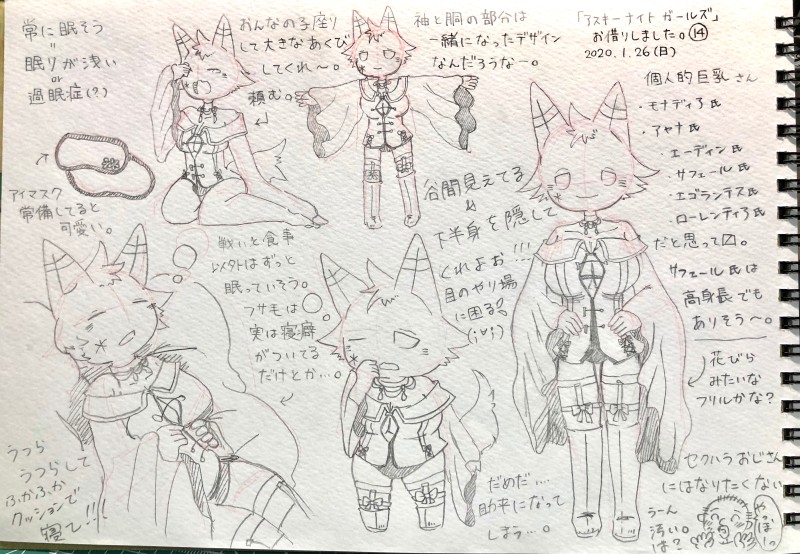 常に眠そう
=
眠りが浅い
or
過眠症(?)
おんなの子座り
して大きなあくび
してくれ〜。
頼む。
袖と胴の部分は
一緒になったデザイン
なんだろうな〜。
「アスキーナイトガールズ」
お借りしました。⑭
2020.1.26(日)
個人的巨乳さん
・モナディろ氏
・アャナ氏
・エーディン氏
・サフェール氏
・エゴランテス氏
・ローレンティろ氏
だと思って〼。
サフェール氏は
高身長でも
ありそう〜。
花びら
みたいな
フリルかな?
アイマスク
常備してると
可愛い。
谷間見えてる
下半身を隠して
くれよお!!!
目のやり場
に困る!
戦いと食事
以外はずっと
眠っていそう。
フサモは
実は寝癖
がついてる
だけとか…。
うつら
うつらして
ふかふか
クッションで
寝て!!!
だめだ…。
助平になって
しまう…。
セクハラおじさん
にはなりたくない
うーん
汚い。
は?
やっほーっ